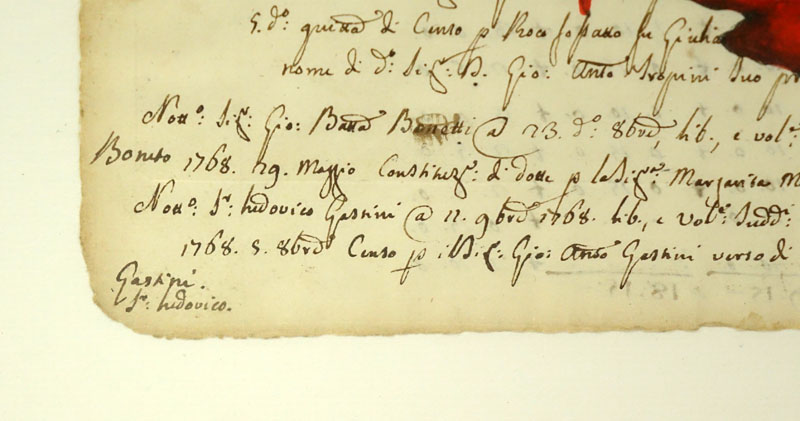 5. d.º quitta di Censo p Roco fossatto fu Giulia
nome di d.º Sig.r D. Gio: Antto Tropini Suo
Nott.º: Sig.r: Gio: Batta Bonetti @ 23. d.º 8bre, lib., e vol.e
Boneto 1768. 29. Maggio di dotte p la Sig.ra: Margarita M
Nott.º S.r Ludovico Gastini @ 11. 9bre 1768. lib., e Vol.e Sudd.e
1768. 5. 8bre Censo p il Sig.r: Gio: Antto Gastini verso di
Gastini.
S.r Ludovico.